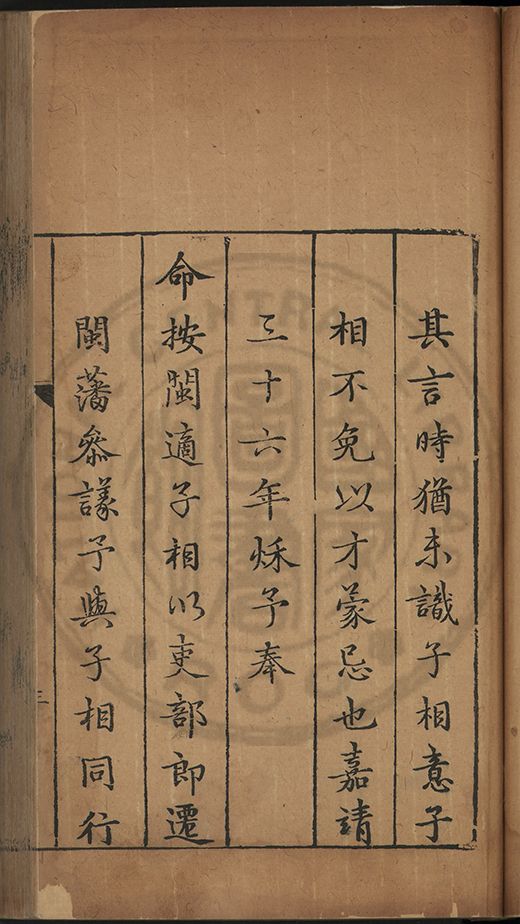 其言時猶未識子相意子
相不免以才蒙忌也嘉靖
三十六年秌予奉
命按閩適子相以吏部郎遷
閩藩叅議予與子相同行
三